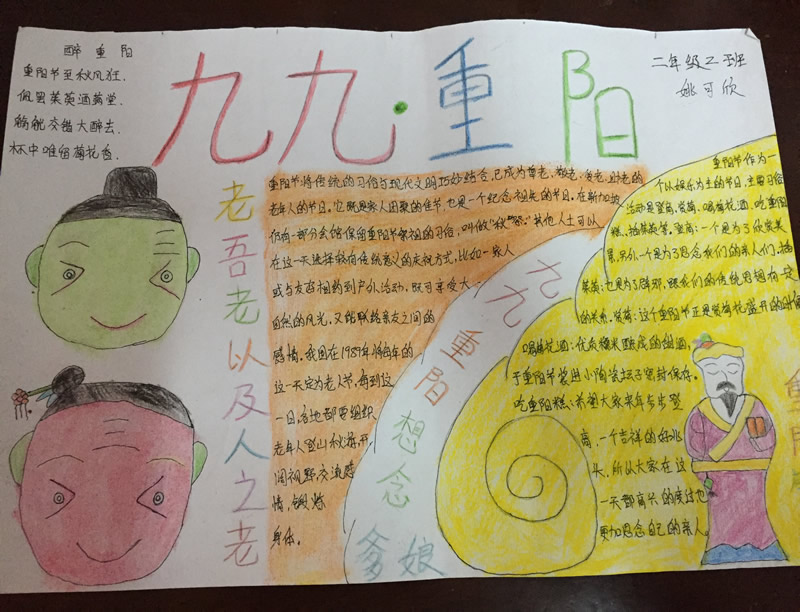 醉重阳
重阳节至秋风狂.
佩男茱萸酒翁堂.
觥觥交错大醉去.
杯中唯留菊花香.
九九·重阳
二年级2班
姚可欣
老吾老以及人之老
重阳节将传统的习俗与现代文明巧妙结合,已成为尊老、敬老、爱老、助老的
老年人的节日。它既是家人团聚的佳节,也是一个纪念祖先的节日。在新加坡
仍有一部分会馆保留重阳节祭祖的习俗,叫做“秋祭”.其他人士可以
在这一天选择较有传统意义的庆祝方式,比如一家人
或与友春相约到户外活动,既可享受大
自然的风光,又能联络亲友之间的
感情。我国在1989年将每年的
这一天定为老人节,每到这
一日,各地都要组织
老年人登山秋游,开
阔视野交流感
情,锻炼
身体.
九九重阳
想念
爹娘
重阳节作为一
个以娱乐为主的节日,主要习俗
活动是登高、赏菊、喝菊花酒、吃重阳
糕、插茱萸等。登高:一个是为了欣赏美
景,另外一个是为了思念我们的亲人们、插
茱萸:也是为了辟邪,跟我们的传统思想有一定
的关系.赏菊:这个重阳节正是赏菊花盛开的时候
喝菊花酒:优质糯米酿成的甜酒,
于重阳节装进小陶瓷坛子密封保存.
吃重阳糕:希望大家来年步步登
高,一个吉祥的好兆
头,所以大家在这
一天都高兴的度过也
更加思念自己的亲人。
重阳